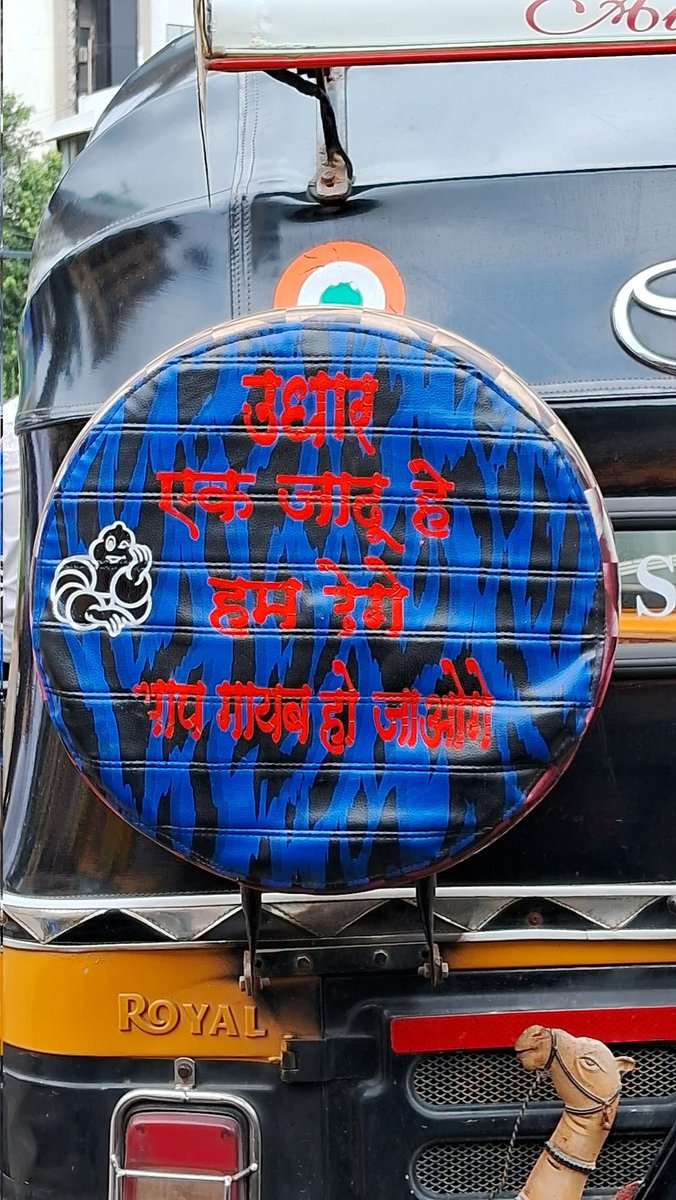 उधार
एक जादू हे
हम देगे
आप गायब हो जाओगे
ROYAL